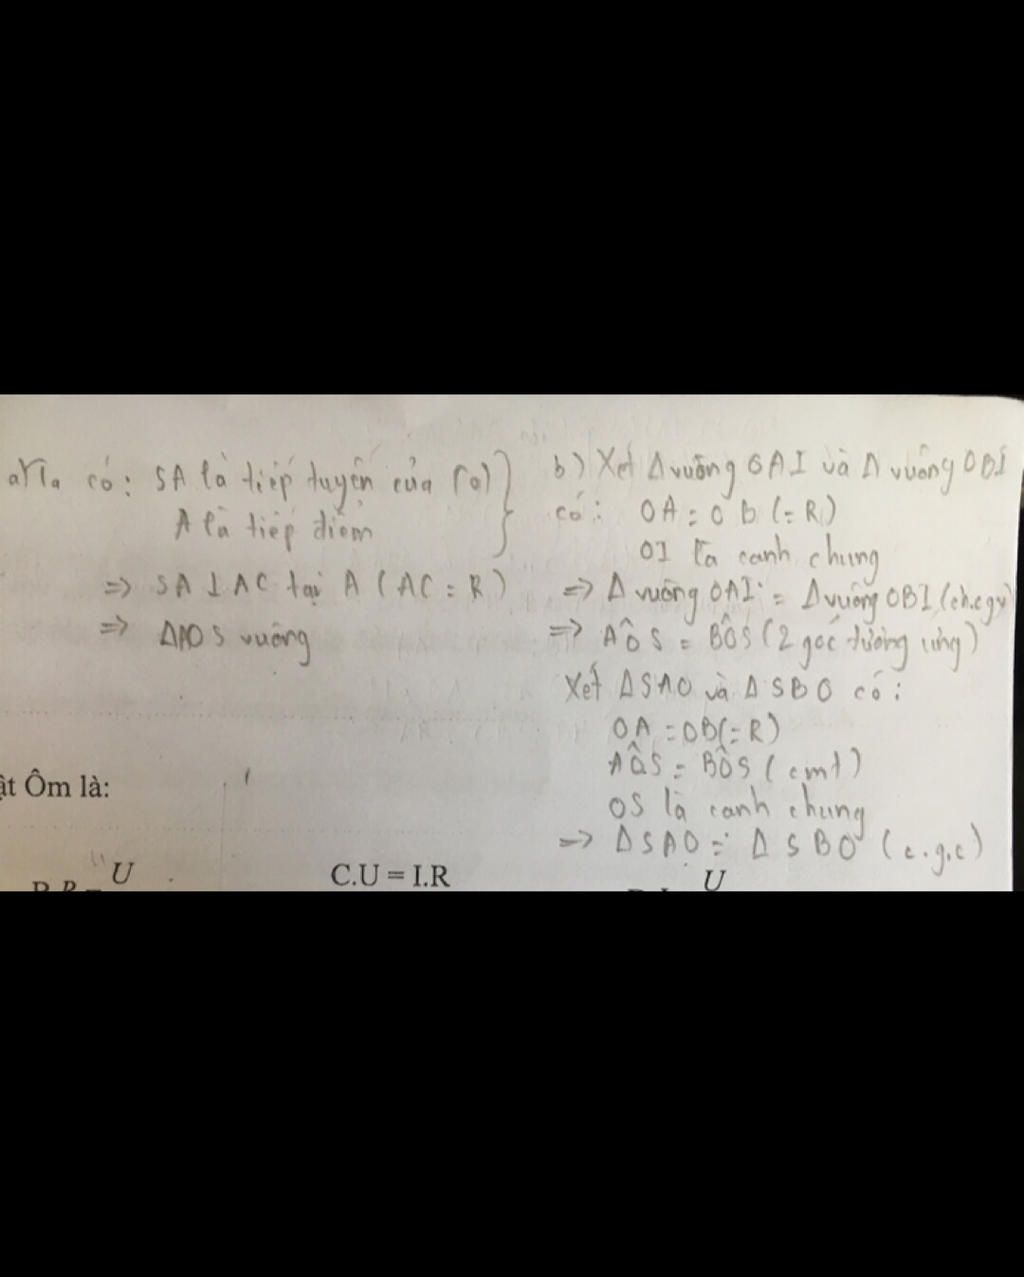 a) Ta có: SA là tiếp tuyến của (O)
A là tiếp điểm
=> SA ⊥ AC tại A (AC = R)
=> ΔAOS vuông
b) Xét Δ vuông OAI và Δ vuông OBI
có: OA = OB (= R)
OI là cạnh chung
=> Δ vuông OAI = Δ vuông OBI (ch.cgv)
=> AÔS = BÔS (2 góc tương ứng)
Xét ΔSAO và ΔSBO có:
OA = OB (= R)
AÔS = BÔS (cmt)
OS là cạnh chung
=> ΔSAO = ΔSBO (c.g.c)
ật Ôm là:
U
C.U = I.R
U